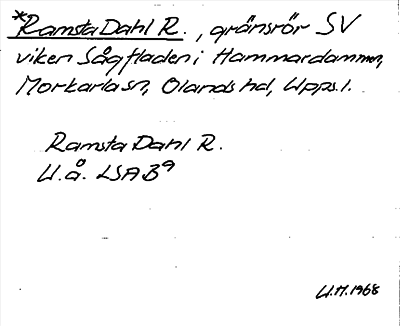 *Ramsta Dahl R., gränsrör SV
viken Sågfladen i Hammardammen,
Morkarla sn, Olands hd, Upps. l.
Ramsta Dahl R.
U.å. LSA B9
U.M. 1968